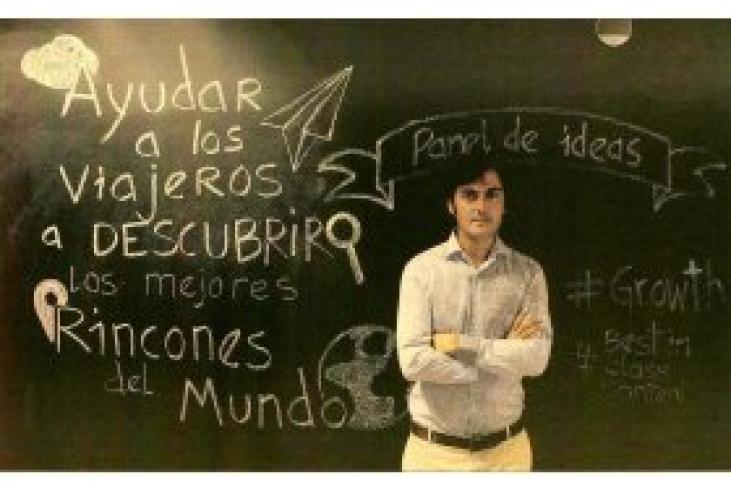 Ayudar
a los
Viajeros
a DESCUBRIR
los mejores
Rincones
del
Mundo
Panel de ideas
#Growth
# Best in
Class
Content